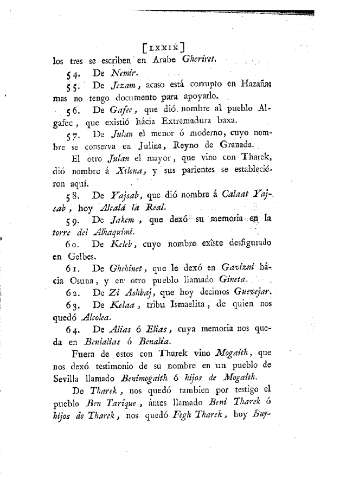 [LXXIX]
los tres se escriben en Arabe Gherivet.
54. De Nemir.
55. De Jezam, acaso está corrupto en Hazañas
mas no tengo documento para apoyarlo.
56. De Gafec, que dió nombre al pueblo Al-
gafec, que existió hácia Extremadura baxa.
57. De Julan el menor ó moderno, cuyo nom-
bre se conserva en Juliza, Reyno de Granada.
El otro Julan el mayor, que vino con Tharek,
dió nombre á Xilena, y sus parientes se establecié-
ron aquí.
58. De Yajsab, que dió nombre á Calaat Yaj-
sab, hoy Alcalá la Real.
59. De Jakem, que dexó su memoria en la
torre del Alhaquimi.
60. De Keleb, cuyo nombre existe desfigurado
en Gelbes.
61. De Ghebinet, que le dexó en Gavizni há-
cia Osuna, y en otro pueblo llamado Gineta.
62. De Zi Ashbaj, que hoy decimos Guevejar.
63. De Kelaa, tribu Ismaelita, de quien nos
quedó Alcolea.
64. De Alias ó Elias, cuya memoria nos que-
da en Benialias ó Benalia.
Fuera de estos con Tharek vino Mogaith, que
nos dexó testimonio de su nombre en un pueblo de
Sevilla llamado Benimogaith ó hijos de Mogaith.
De Tharek, nos quedó tambien por testigo el
pueblo Ben Tarique, ántes llamado Beni Tharek ó
hijos de Tharek, nos quedó Fegh Tharek, hoy Buy-